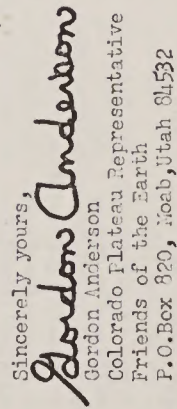 Sincerely yours,
Gordon Anderson
Gordon Anderson
Colorado Plateau Representative
Friends of the Earth
P.O.Box 820, Moab,Utah 84532